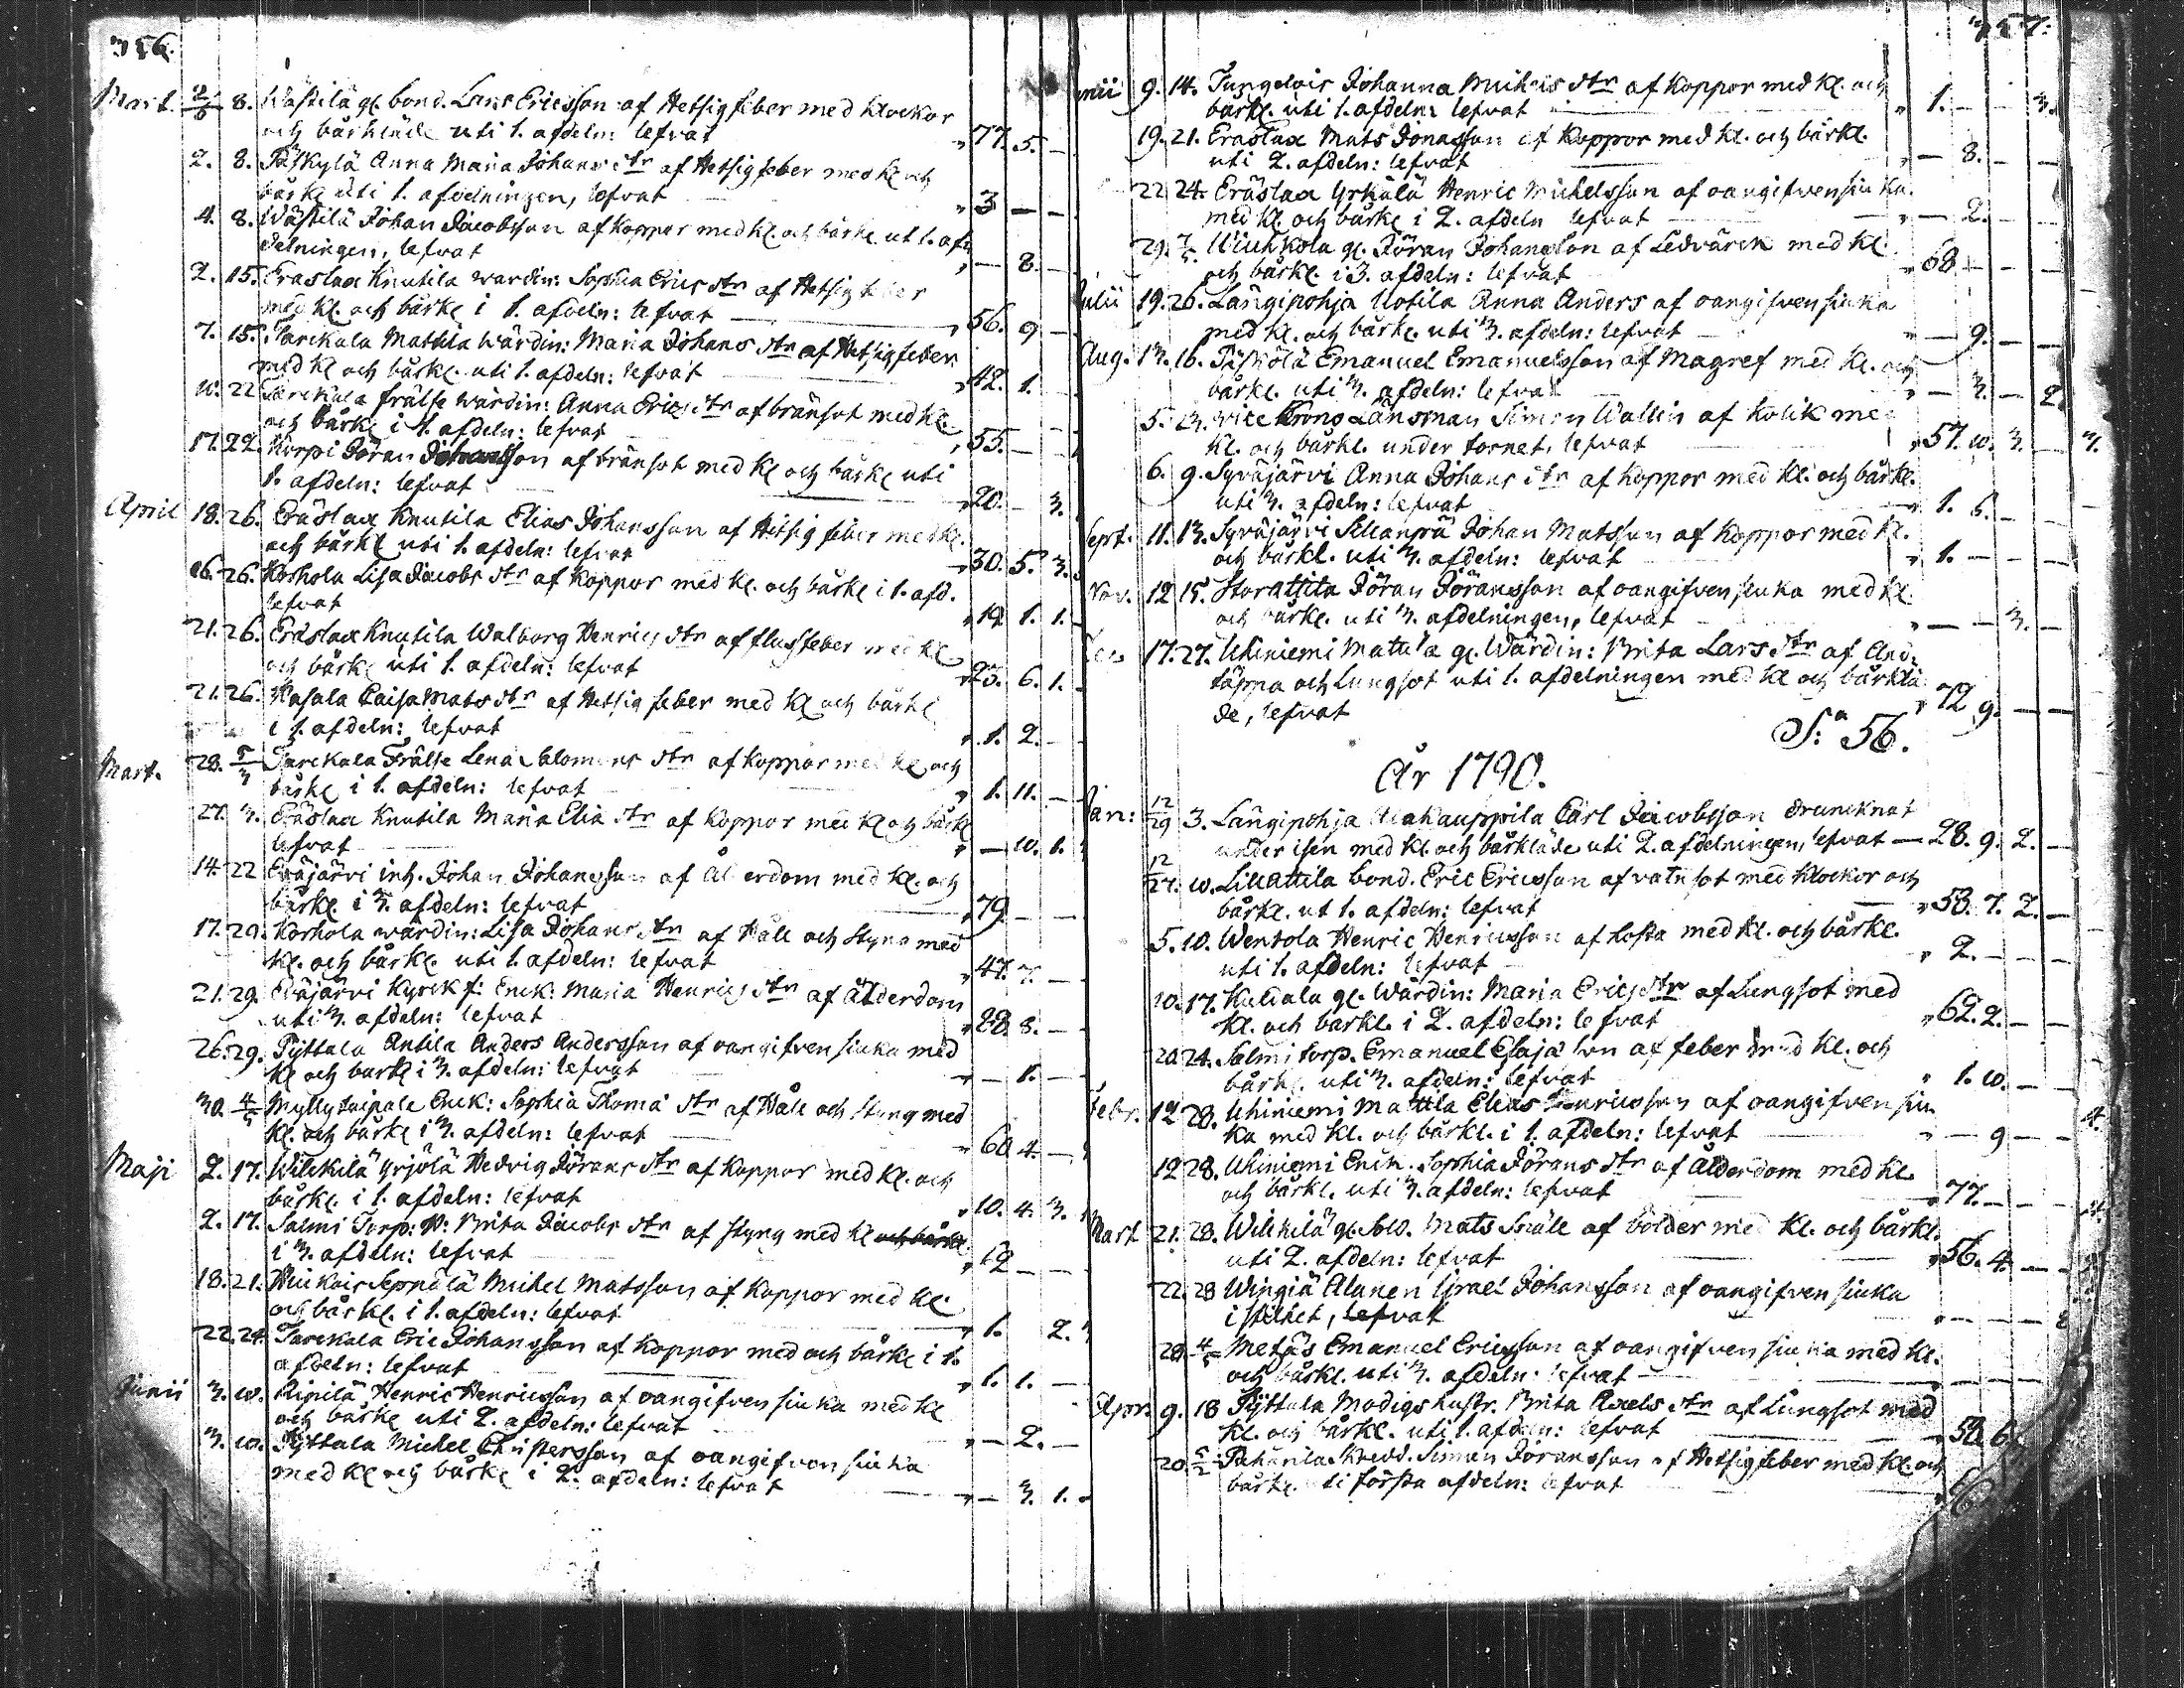 356.
Mart. 2/6 8. Wästilä gl. bond. Lars Ericsson af Hetsig feber med klockor
och bårkläde uti 1. afdeln: lefvat " 77. 5. —
2. 8. Anna Maria Johans dtr af Hetsig feber med kl och
bårkl uti 1. afdelningen, lefvat " 3 — —
4. 8. Wästilä Johan Jacobsson af koppor med kl. och bårkl. ut 1. af:
delningen, lefvat " — 8. —
2. 15. Eräslax Knutila wärdin: Sophia Erics dtr af Hetsig feber
med kl. och bårkl i 1. afdeln: lefvat " 56. 9 —
7. 15. Tarckala Mattila wärdin: Maria Johans dtr af Hetsig feber
med kl och bårkl. uti 1. afdeln: lefvat " 42. 1.
10. 22 Tarckala frälse wärdin: Anna Erics dtr af bränsot med kl.
och bårkl i 1. afdeln: lefvat " 55. —
17. 22. Korpi Jöran Johansson af bränsot med kl och bårkl uti
1. afdeln: lefvat " 20. — 3.
April 18. 26. Eräslax Knutila Elias Johansson af Hetsig feber med kl.
och bårkl uti 1. afdeln: lefvat " 30. 5. 3.
16. 26. Korhola Lisa Jacobs dtr af koppor med kl. och bårkl i 1. afd.
lefvat " 19 1. 1.
21. 26. Eräslax Knutila Walborg Henrics dtr af flussfeber med kl
och bårkl uti 1. afdeln: lefvat " 23. 6. 1.
21. 26. Kasala Caisa Mats dtr af Hetsig feber med kl och bårkl
i 1. afdeln: lefvat " 1. 2. —
Mart. 28. 5/3 Tarckala Frälse Lena Salomons dtr af koppor med kl och
bårkl i 1. afdeln: lefvat " 1. 11. —
27. 3. Eräslax Knutila Maria Elia dtr af koppor med kl och bårkl
lefvat " — 10. 1.
14. 22 Eräjärvi inh. Johan Johansson af Ålderdom med kl. och
bårkl. i 3. afdeln: lefvat " 79 — —
17. 29. Korhola wärdin: Lisa Johans dtr af Håll och Styng med
kl. och bårkl. uti 1. afdeln: lefvat " 47. 7. —
21. 29. Eräjärvi Kyrck f: Enck: Maria Henrics dtr af Ålderdom
uti 3. afdeln: lefvat " 88 8. —
26. 29. Pyttala Antila Anders Andersson af oangifven siuka med
kl och barkl i 3. afdeln: lefvat " — 1. —
30. 4/5 Myllytaipale Enck: Sophia Thoma dtr af Håll och styng med
kl. och bårkl i 3. afdeln: lefvat " 60 4. —
Maji 2. 17. Wilckilä Yrjölä Hedvig Jörans dtr af koppor med kl. och
bårkl. i 1. afdeln: lefvat " 10. 4. 3.
2. 17. Salmi Torp: Brita Jacobs dtr af styng med kl och bårkl.
i 3. afdeln: lefvat " 62 — —
18. 21. Seppälä Michel Matsson af koppor med kl:
och bårkl. i 1. afdeln: lefvat " 1. 2.
22. 24. Tarckala Eric Johansson af koppor med och bårkl i 1.
afdeln: lefvat " 1. 1. —
Junii 3. 10. Ripilä Henric Henricsson af oangifven siuka med kl
och bårkl uti 2. afdeln: lefvat " — 2. —
3. 10. Pyttala Michel Christersson af oangifven siuka
med kl och bårkl i 2. afdeln: lefvat " — 3. 1.
357.
9. 14. Johanna Michels dtr af koppor med kl. och
bårkl. uti 1. afdeln: lefvat " 1. — 3.
19. 21. Eräslax Mats Jonasson af koppor med kl. och bårkl.
uti 2. afdeln: lefvat " — 8. —
22 24. Eräslax Yrkälä Henric Michelsson af oangifven siuka
med kl. och bårkl i 2. afdeln lefvat " — 2. —
29. 7/5 gl. Jöran Johansson af Ledvärck med kl.
och bårkl. i 3. afdeln: lefvat " 68 — —
Julii 19. 26. Längipohja Uotila Anna Anders af oangifven siuka
med kl. och bårkl. uti 3. afdeln: lefvat " — 9. —
Aug. 13. 16. Emanuel Emanuelsson af Magref med kl. och
bårkl. uti 3. afdeln: lefvat " — 3. — 2.
5. 13. vice Krono Länsman Simon Wallin af kolik med
kl. och bårkl. under tornet, lefvat " 57. 10. 3. — 7.
6. 9. Syväjärvi Anna Johans dtr af koppor med kl. och bårkl.
uti 3. afdeln: lefvat " 1. 6. —
Sept. 11. 13. Syväjärvi Johan Matsson af koppor med kl.
och bårkl. uti 3. afdeln: lefvat " 1. —
Nov. 12 15. Storattila Jöran Jöransson af oangifven siuka med kl.
och bårkl. uti 3. afdelningen, lefvat " — — 3. —
17. 27. Uhiniemi Matula gl. Wärdin: Brita Lars dtr af And:
täppa och Lungsot uti 1. afdelningen med kl och bårklä
de, lefvat " 72 9. — —
S:a 56.
År 1790.
Jan: 12/29 3. Längipohja Carl Jacobsson drunknat
under isen med kl. och bårkläde uti 2. afdelningen, lefvat — 28. 9. 2. —
12/27. 10. Lillattila bond. Eric Ericsson af vatusot med klockor och
bårkl. ut 1. afdeln: lefvat " 53. 7. 2. —
5. 10. Wentola Henric Henricsson af hosta med kl. och bårkl.
uti 1. afdeln: lefvat " 2. — —
10. 17. gl. Wärdin: Maria Erics dtr af Lungsot med
kl. och barkl. i 2. afdeln: lefvat " 62. 2. — —
20 24. Salmi torp. Emanuel Esaja son af feber med kl. och
bårkl. uti 3. afdeln: lefvat " 1. 10. —
Febr. 12 28. Uhiniemi Mattila Elias Henricsson af oangifven siu
ka med kl. och bårkl. i 1. afdeln: lefvat " — 9 — — 4.
12 28. Uhiniemi Enck. Sophia Jörans dtr af Ålderdom med kl.
och bårkl. uti 3. afdeln: lefvat " 77. — —
Mart 21. 28. Wilckilä gl. Sold. Mats Snäll af bölder med kl. och bårkl.
uti 2. afdeln: lefvat " 56. 4. — —
22. 28 Wingiä Alanen Israel Johansson af oangifven siuka
i stilhet, lefvat " — — —
28. 4/5 Metzäs Emanuel Ericsson af oangifven siuka med kl.
och bårkl. uti 3. afdeln: lefvat — — —
Apr. 9. 18 Pyttala Modigs hustr. Brita Axels dtr af Lungsot med
kl. och bårkl. uti 1. afdeln: lefvat " 50. 6.
20. 5/2 Skredd. Simon Jöransson af Hetsig feber med kl. och
bårkl. uti första afdeln: lefvat